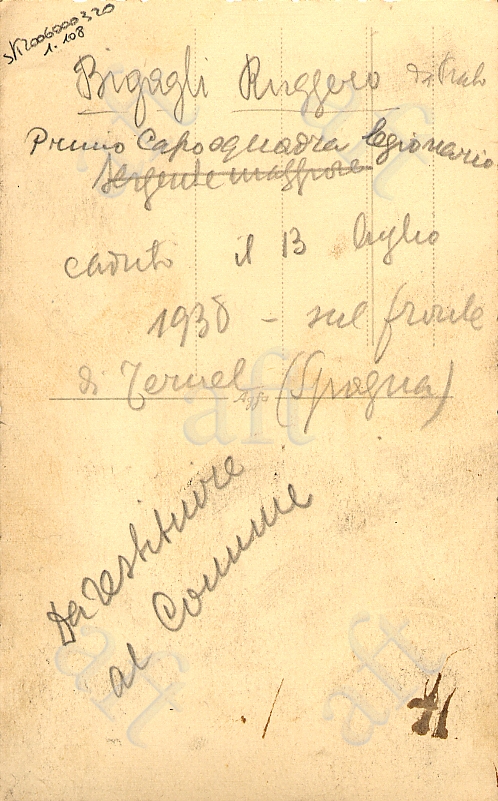 SVI2006000320
1.108
Bigagli Ruggero da Prato
Primo Caposquadra legionario
Sergente maggiore
caduto il 13 luglio
1938 - sul fronte
di Teruel (Spagna)
Agfa
aft
Da restituire
al Comune
aft
aft